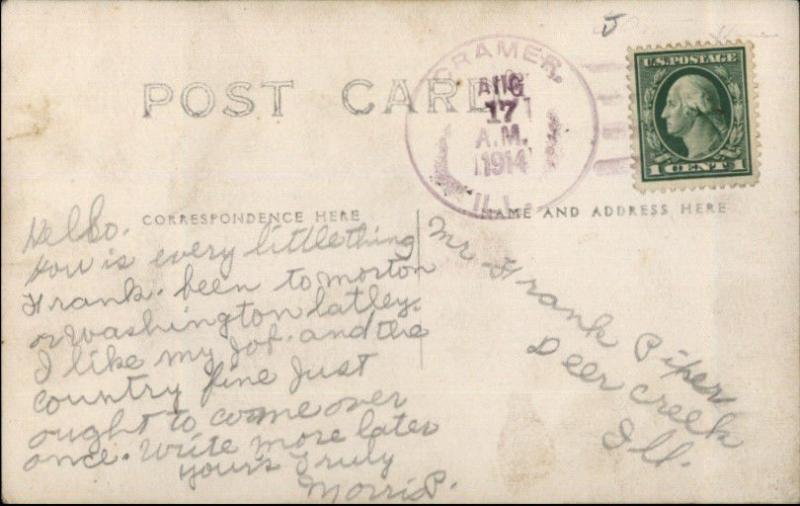 POST CARD
CRAMER,
AUG
17
A.M.
1914
ILL.
U.S. POSTAGE
1 CENT 1
CORRESPONDENCE HERE
NAME AND ADDRESS HERE
Hello.
How is every littlething
Frank. been to morton
or Washington latley.
I like my Job. and the
country fine Just
ought to come over
once. Write more later
yours Truly
Morris P.
Mr. Frank Piper
Deer Creek
Ill.